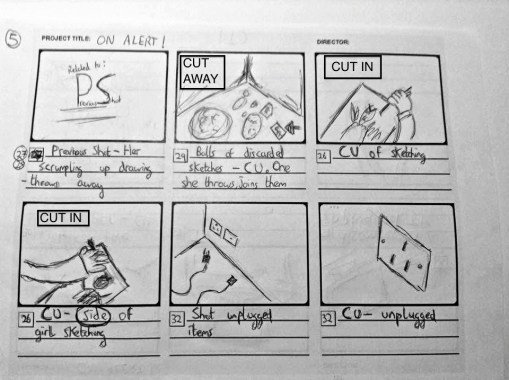 5
PROJECT TITLE: ON ALERT!
DIRECTOR:
Related to:
PS
Previous Shot
CUT
AWAY
CUT IN
27
28
Previous Shot - Her
scrumpling up drawing
- throws away
29
Balls of discarded
sketches - CU. One
she throws, joins them
26
CU of sketching
CUT IN
26
CU - Side of
girl sketching
32
Shot unplugged
items
32
CU - unplugged